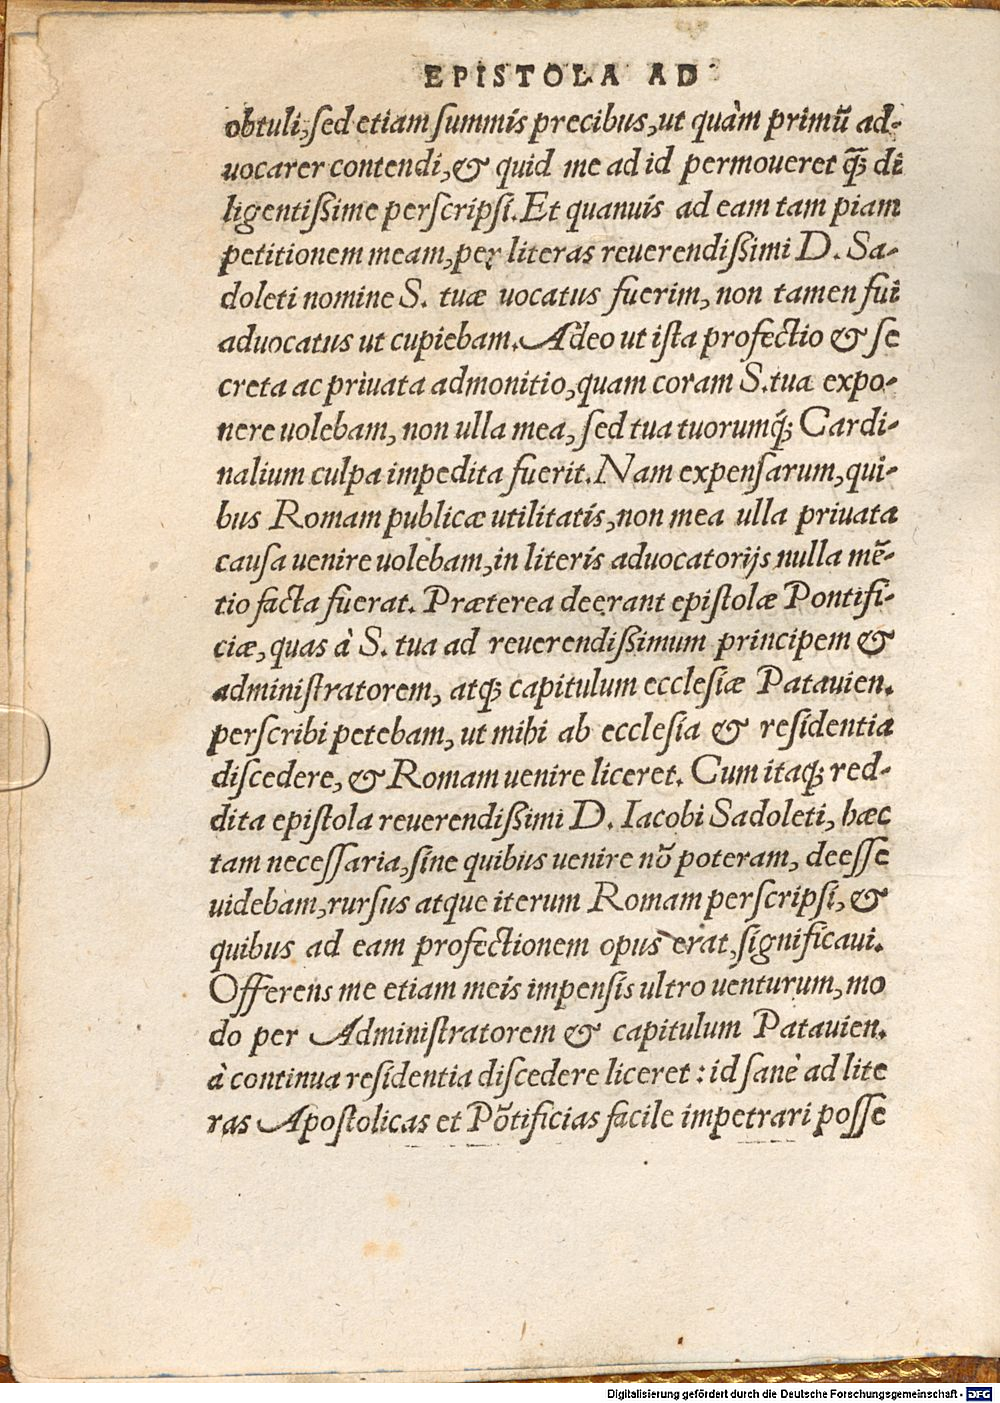 EPISTOLA AD
obtuli, sed etiam summis precibus, ut quàm primũ ad-
uocarer contendi, & quid me ad id permoueret q̃ꝫ di
ligentißime perscripsi. Et quanuis ad eam tam piam
petitionem meam, per literas reuerendißimi D. Sa-
doleti nomine S. tuæ uocatus fuerim, non tamen fui
aduocatus ut cupiebam. Adeo ut ista profectio & se
creta ac priuata admonitio, quam coram S. tua expo-
nere uolebam, non ulla mea, sed tua tuorumq́ꝫ Cardi-
nalium culpa impedita fuerit. Nam expensarum, qui-
bus Romam publicæ utilitatis, non mea ulla priuata
causa uenire uolebam, in literis aduocatorijs nulla mẽ-
tio facta fuerat. Præterea deerant epistolæ Pontifi-
ciæ, quas à S. tua ad reuerendißimum principem &
administratorem, atqꝫ capitulum ecclesiæ Patauien.
perscribi petebam, ut mihi ab ecclesia & residentia
discedere, & Romam uenire liceret. Cum itaqꝫ red-
dita epistola reuerendißimi D. Iacobi Sadoleti, hæc
tam necessaria, sine quibus uenire nõ poteram, deesse
uidebam, rursus atque iterum Romam perscripsi, &
quibus ad eam profectionem opus erat, significaui.
Offerens me etiam meis impensis ultro uenturum, mo
do per Administratorem & capitulum Patauien.
à continua residentia discedere liceret : id sanè ad lite
ras Apostolicas et Põtificias facile impetrari posse
Digitalisierung gefördert durch die Deutsche Forschungsgemeinschaft - DFG